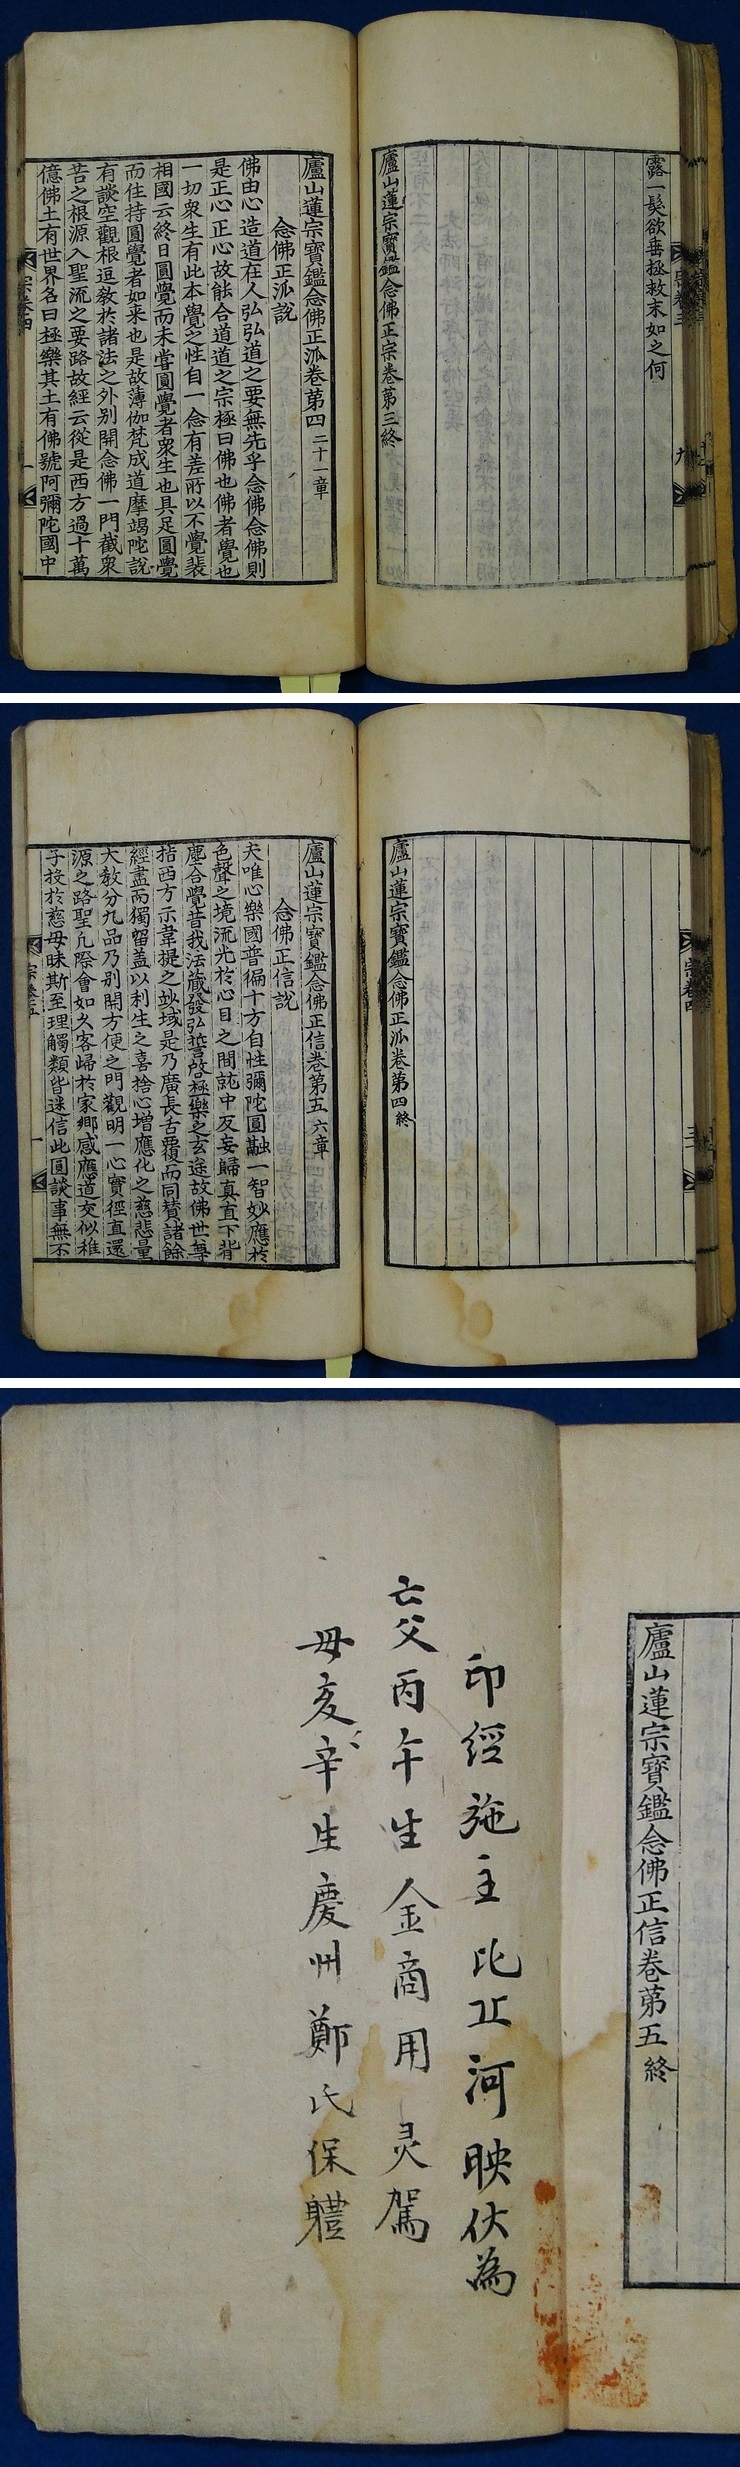 露一髮欲垂拯救末如之何
廬山蓮宗寶鑑念佛正宗卷第三終
宗卷三
九
廬山蓮宗寶鑑念佛正派卷第四 二十一章
念佛正派說
佛由心造道在人弘弘道之要無先乎念佛念佛則
是正心正心故能合道道之宗極曰佛也佛者覺也
一切衆生有此本覺之性自一念有差所以不覺裴
相國云終日圓覺而未嘗圓覺者衆生也具足圓覺
而住持圓覺者如来也是故薄伽梵成道摩竭陀說
有談空觀根逗敎於諸法之外別開念佛一門截衆
苦之根源入聖流之要路故經云從是西方過十萬
億佛土有世界名曰極樂其土有佛號阿彌陀國中
宗卷四
一
廬山蓮宗寶鑑念佛正派卷第四終
宗卷四
廬山蓮宗寶鑑念佛正信卷第五 六章
念佛正信說
夫唯心樂國普徧十方自性彌陀圓融一智妙應於
色聲之境流光於心目之間就中反妄歸真直下背
塵合覺昔我法藏發弘誓啓極樂之玄途故佛世尊
指西方示韋提之妙域是乃廣長舌覆而同賛諸餘
經盡而獨留蓋以利生之喜捨心增應化之慈悲量
大敎分九品乃別開方便之門觀明一心實徑直還
源之路聖凡際會如久客歸於家鄉感應道交似稚
子投於慈母昧斯至理觸類皆迷信此圓談事無不
宗卷五
一
廬山蓮宗寶鑑念佛正信卷第五終
印經施主比丘河映伏為
亡父丙午生金商用灵駕
母亥辛生慶州鄭氏保軆